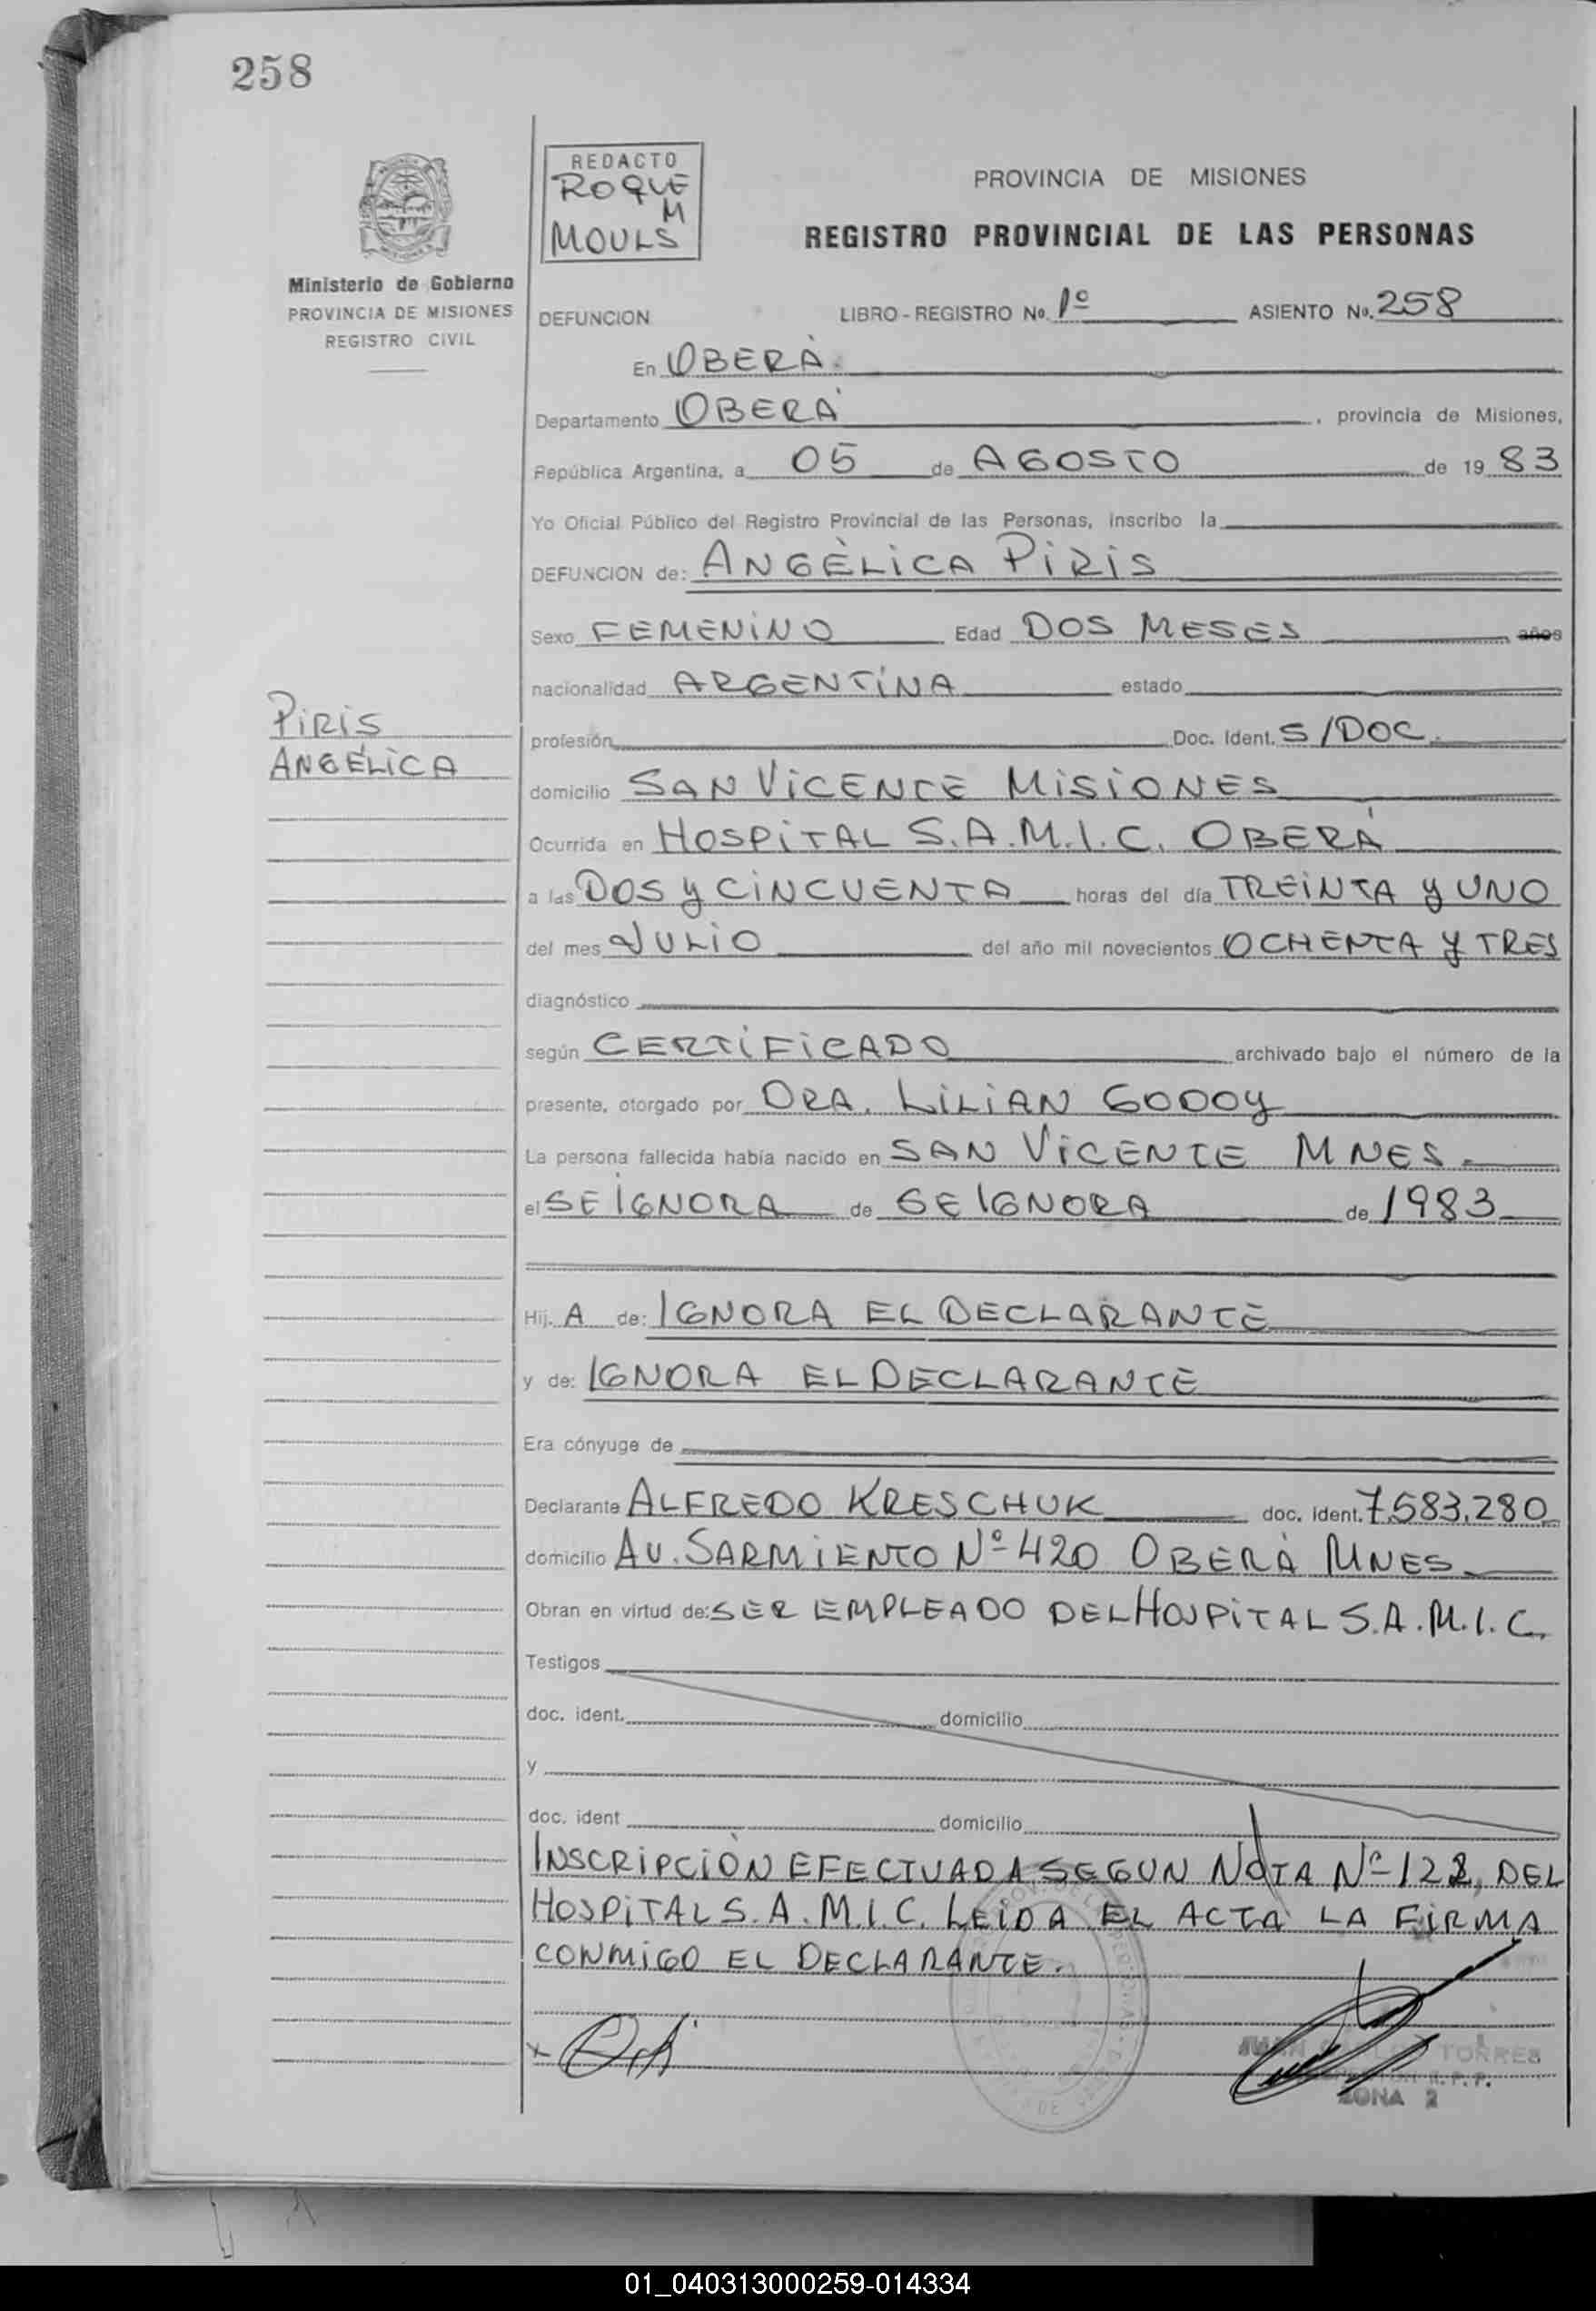 258
REDACTO
ROQUE
M
MOULS
PROVINCIA DE MISIONES
REGISTRO PROVINCIAL DE LAS PERSONAS
Ministerio de Gobierno
PROVINCIA DE MISIONES
REGISTRO CIVIL
DEFUNCION LIBRO-REGISTRO No. 1º ASIENTO No. 258
En OBERÁ.
Departamento OBERÁ, provincia de Misiones,
República Argentina, a 05 de AGOSTO de 19 83
Yo Oficial Público del Registro Provincial de las Personas, inscribo la
DEFUNCION de: ANGÉLICA PIRIS
Sexo FEMENINO Edad DOS MESES años
nacionalidad ARGENTINA estado
PIRIS
ANGÉLICA
profesión Doc. Ident. S/DOC.
domicilio SAN VICENTE MISIONES
Ocurrida en HOSPITAL S.A.M.I.C. OBERÁ
a las DOS Y CINCUENTA horas del día TREINTA Y UNO
del mes JULIO del año mil novecientos OCHENTA Y TRES
diagnóstico
según CERTIFICADO archivado bajo el número de la
presente, otorgado por DRA. LILIAN GODOY
La persona fallecida había nacido en SAN VICENTE MNES.
el SE IGNORA de SE IGNORA de 1983
Hij. A de: IGNORA EL DECLARANTE
y de: IGNORA EL DECLARANTE
Era cónyuge de
Declarante ALFREDO KRESCHUK doc. Ident. 7.583.280
domicilio AV. SARMIENTO Nº 420 OBERÁ MNES
Obran en virtud de: SER EMPLEADO DEL HOSPITAL S.A.M.I.C.
Testigos
doc. ident. domicilio
y
doc. ident domicilio
INSCRIPCIÓN EFECTUADA SEGUN NOTA Nº 122, DEL
HOSPITAL S.A.M.I.C. LEIDA EL ACTA LA FIRMA
CONMIGO EL DECLARANTE.
TORRES
R.P.P.
ZONA 2
01_040313000259-014334